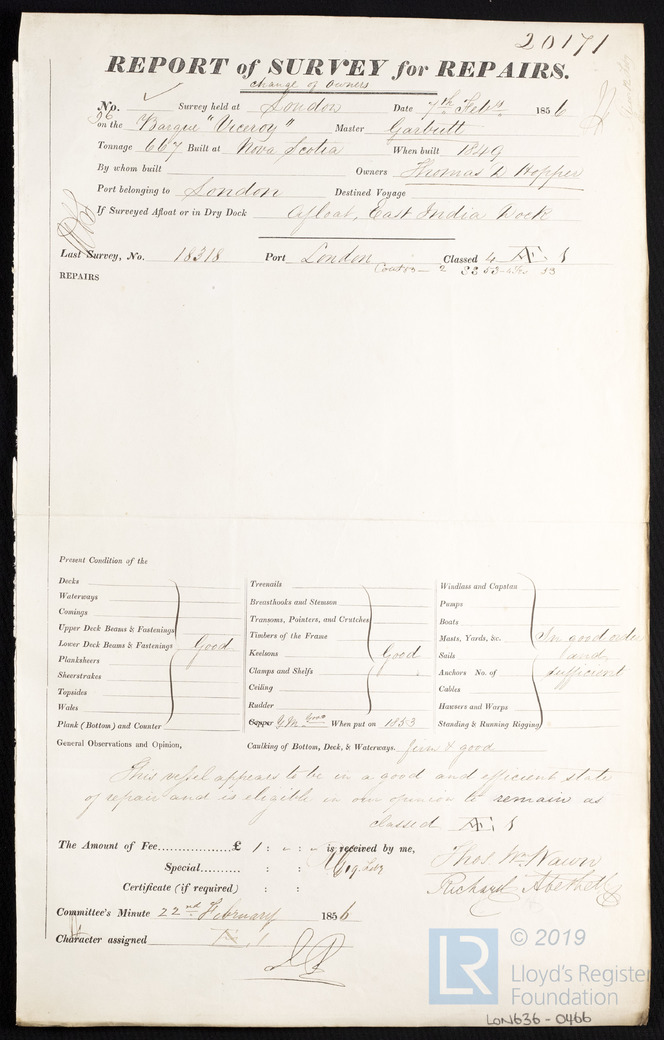 20171
REPORT of SURVEY for REPAIRS.
Change of Owners
No. Survey held at London Date 7th Feby. 1856
on the Barque "Viceroy" Master Garbutt
Tonnage 667 Built at Nova Scotia When built 1849
By whom built Owners Thomas D Hopper
Port belonging to London Destined Voyage
If Surveyed Afloat or in Dry Dock Afloat, East India Dock
Last Survey, No. 18318 Port London Classed 4 Æ 1
REPAIRS
Present Condition of the
Decks
Waterways
Comings
Upper Deck Beams & Fastenings
Lower Deck Beams & Fastenings Good
Planksheers
Sheerstrakes
Topsides
Wales
Plank (Bottom) and Counter
Treenails
Breasthooks and Stemson
Transoms, Pointers, and Crutches
Timbers of the Frame
Keelsons Good
Clamps and Shelfs
Ceiling
Rudder
Copper Y.M. Good When put on 1853
Windlass and Capstan
Pumps
Boats
Masts, Yards, &c. In good order
Sails and
Anchors No. of sufficient
Cables
Hawsers and Warps
Standing & Running Rigging
General Observations and Opinion, Caulking of Bottom, Deck, & Waterways. firm & good
This vessel appears to be in a good and efficient state
of repair and is eligible in our opinion to remain as
classed Æ 1
The Amount of Fee £ 1 : - : - is received by me,
Special : :
Certificate (if required) : :
Thos Wm Nawn
Richard Abethell
Committee's Minute 22nd February 1856
Character assigned Æ 1
LR © 2019
Lloyd's Register
Foundation
LON636-0466